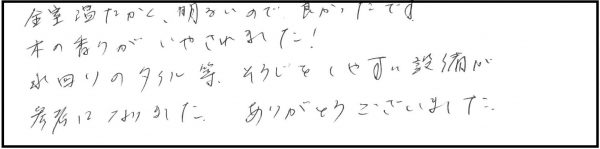 全室温だかく、明るいので良かったです
木の香りがいやされました!
水回りのタイル等、そうじをしやすい設備が
参考になりました。ありがとうございました。